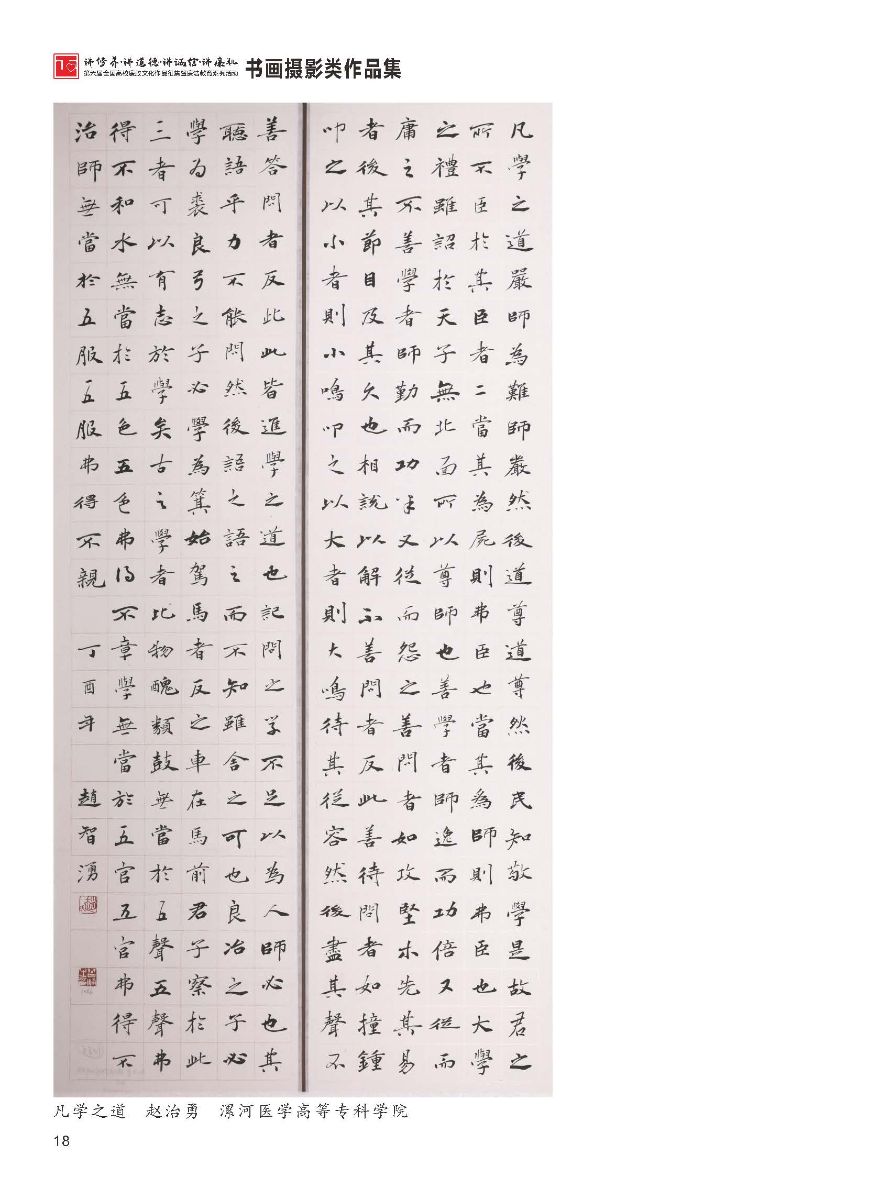 讲修养·讲道德·讲诚信·讲廉耻
第六届全国高校廉政文化作品征集暨廉洁教育系列活动
书画摄影类作品集
凡學之道嚴師為難師嚴然後道尊道尊然後民知敬學是故君之
所不臣於其臣者二當其為屍則弗臣也當其為師則弗臣也大學
之禮雖詔於天子無北面所以尊師也善學者師逸而功倍又從而
庸之不善學者師勤而功半又從而怨之善問者如攻堅木先其易
者後其節目及其久也相說以解不善問者反此善待問者如撞鍾
叩之以小者則小鳴叩之以大者則大鳴待其從容然後盡其聲不
善答問者反此此皆進學之道也記問之学不足以為人師必也其
聽語乎力不能問然後語之語之而不知雖舍之可也良冶之子必
學为裘良弓之子必學為箕始駕馬者反之車在馬前君子察於此
三者可以有志於學矣古之學者比物醜類鼓無當於五聲五聲弗
得不和水無當於五色五色弗得不章學無當於五官五官弗得不
治師無當於五服五服弗得不親 丁酉年 趙智湧
凡学之道 赵治勇 漯河医学高等专科学院
18